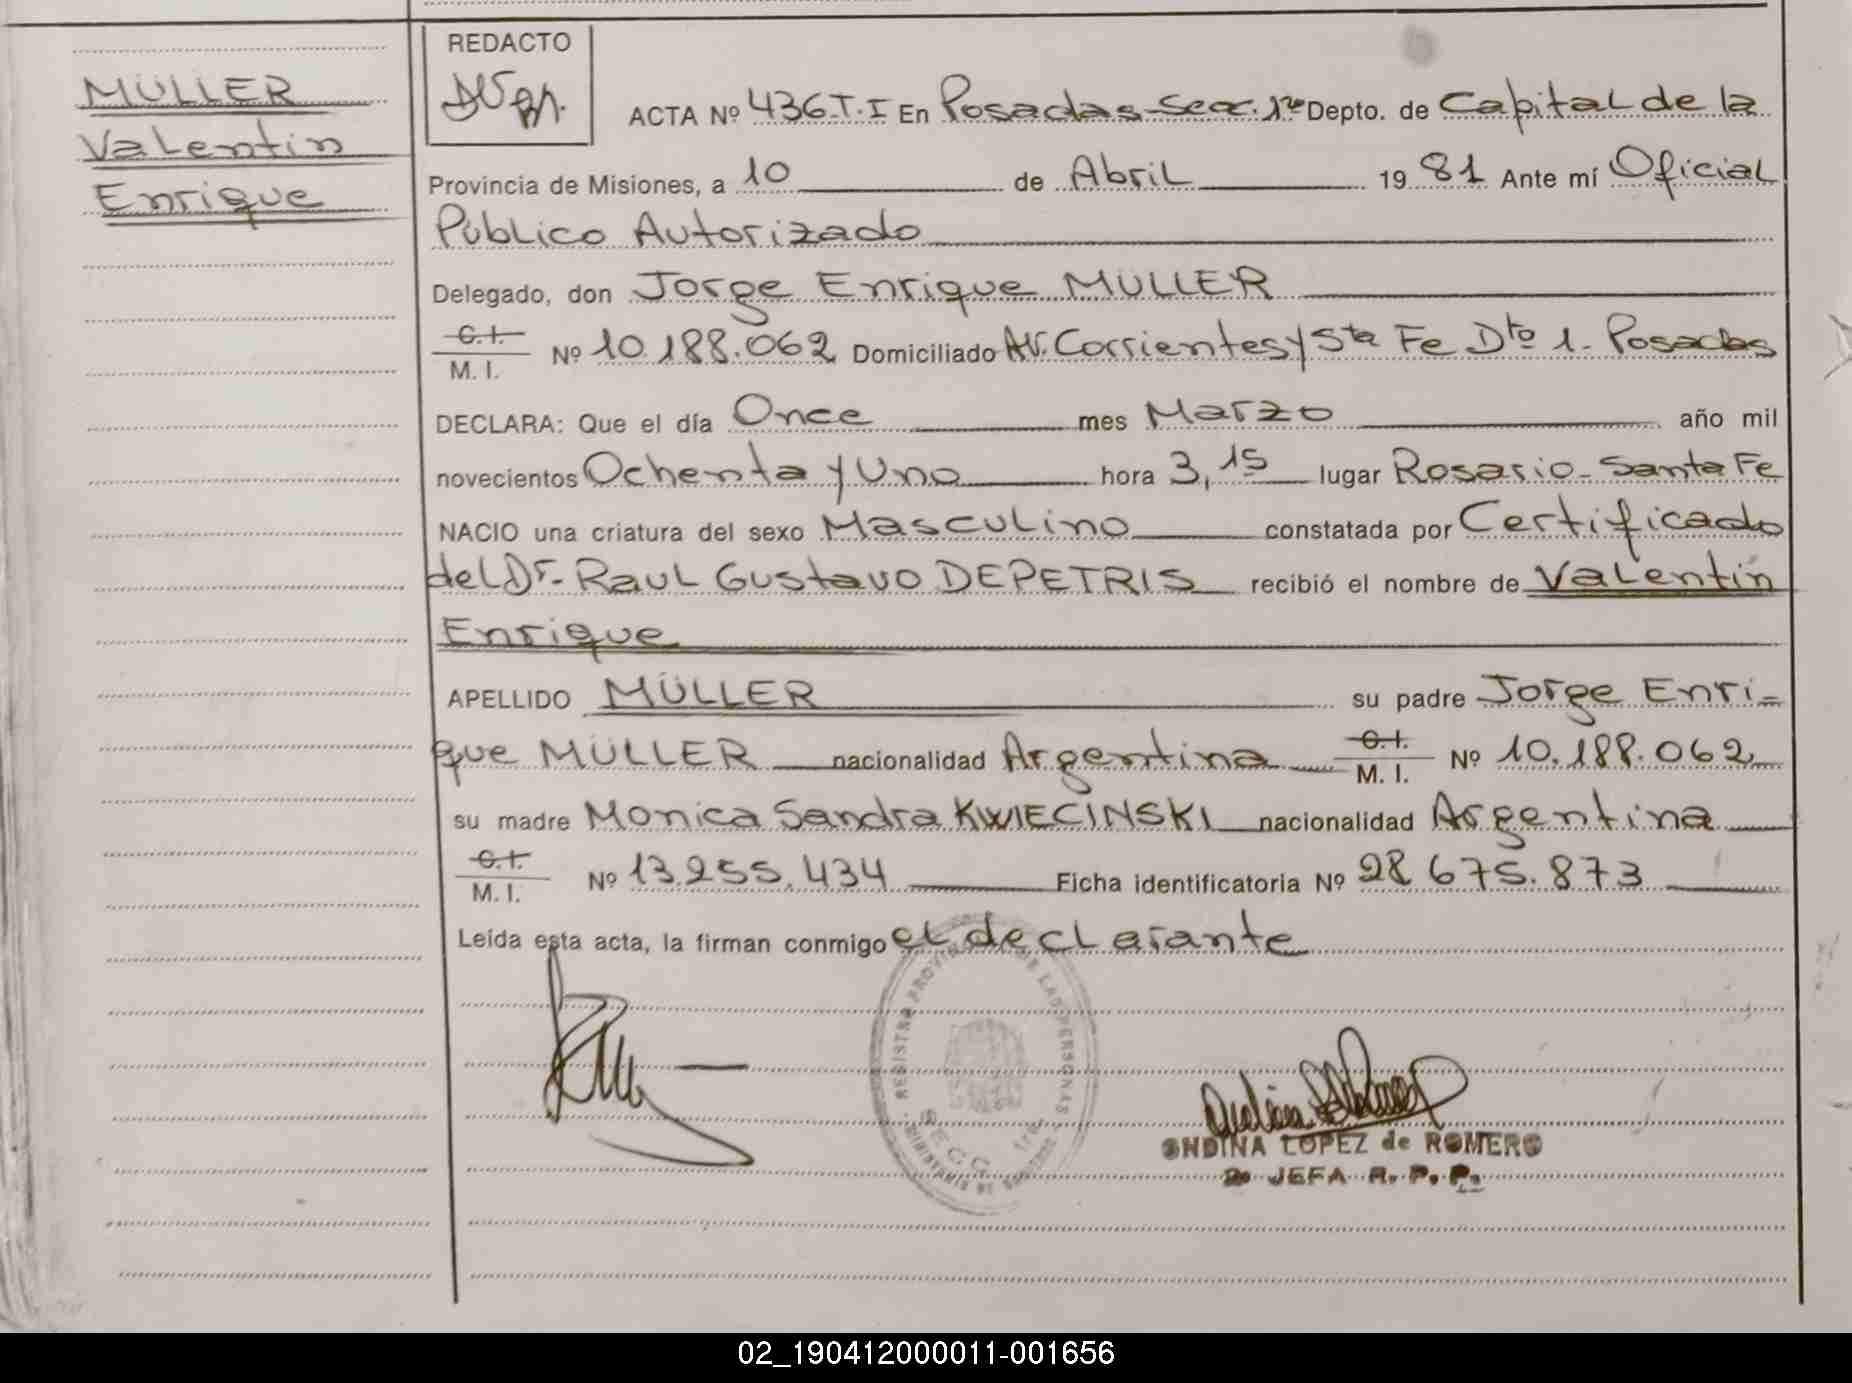 MÜLLER
Valentin
Enrique
REDACTO
ACTA Nº 436.T.I En Posadas-Secc. 1ra Depto. de Capital de la
Provincia de Misiones, a 10 de Abril 1981 Ante mí Oficial
Público Autorizado
Delegado, don Jorge Enrique MÜLLER
C.I.
M. I. Nº 10.188.062 Domiciliado Av. Corrientes y Sta Fe Dto 1- Posadas
DECLARA: Que el día Once mes Marzo año mil
novecientos Ochenta y Uno hora 3,15 lugar Rosario-Santa Fe
NACIO una criatura del sexo Masculino constatada por Certificado
del Dr. RAUL GUSTAVO DEPETRIS recibió el nombre de Valentín
Enrique
APELLIDO MÜLLER su padre Jorge Enri-
que MÜLLER nacionalidad Argentina C.I. M. I. Nº 10.188.062
su madre Monica Sandra KWIECINSKI nacionalidad Argentina
C.I.
M. I. Nº 13.255.434 Ficha identificatoria Nº 28.675.873
Leída esta acta, la firman conmigo el declarante
REGISTRO PROVIN DE LAS PERSONAS
SECC. 1ra
ONDINA LOPEZ de ROMERO
2º JEFA R. P. P.
02_190412000011-001656